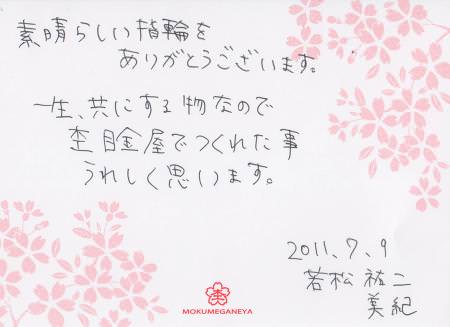 素晴らしい指輪を
ありがとうございます。
一生、共にする物なので
杢目金屋でつくれた事
うれしく思います。
2011.7.9
若松祐二
美紀
MOKUMEGANEYA